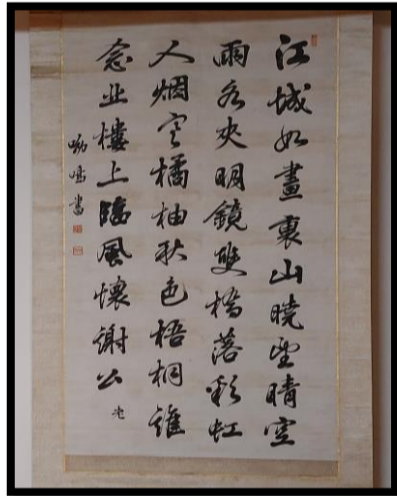 江城如畫裏山曉望晴空
雨水夾明鏡雙橋落彩虹
人烟寒橘柚秋色梧桐誰
念北樓上臨風懷謝公 老
鳴書